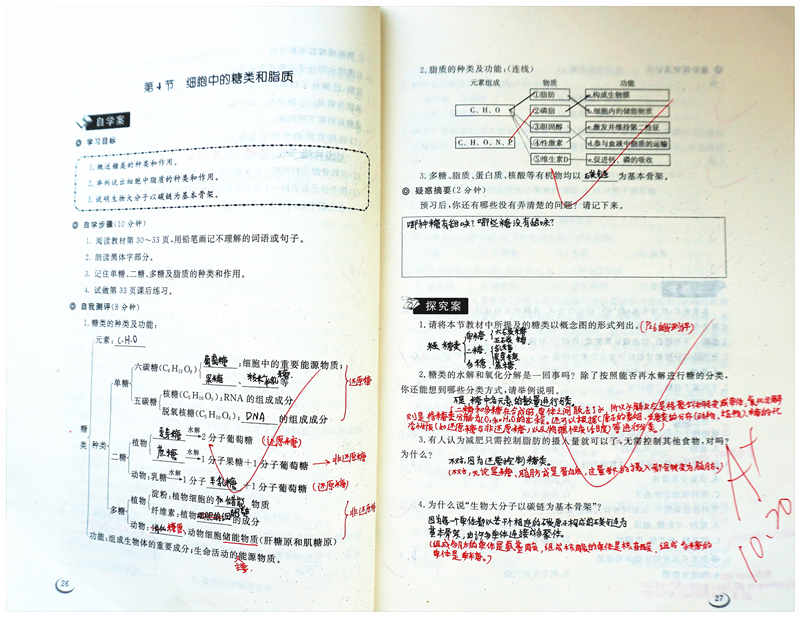 第4节 细胞中的糖类和脂质
自学案
学习目标
1.概述糖类的种类和作用。
2.举例说出细胞中脂质的种类和作用。
3.说明生物大分子以碳链为基本骨架。
自学步骤(10分钟)
1. 阅读教材第30～33页,用铅笔画记不理解的词语或句子。
2. 朗读黑体字部分。
3. 记住单糖、二糖、多糖及脂质的种类和作用。
4. 试做第33页课后练习。
自我测评(8分钟)
1.糖类的种类及功能:
元素: C.H.O
六碳糖(C₆H₁₂O₆) 葡萄糖 :细胞中的重要能源物质;
果糖 、 等
单糖
还原糖
五碳糖
核糖(C₅H₁₀O₅):RNA的组成成分
脱氧核糖(C₅H₁₀O₄): DNA 的组成成分
糖类
种类
二糖
植物
麦芽糖 水解 2分子葡萄糖 (还原糖)
蔗糖 水解 1分子果糖+1分子葡萄糖 非还原糖
动物:乳糖 水解 1分子 半乳糖 +1分子葡萄糖 (还原糖)
多糖
植物
淀粉:植物细胞的 储能 物质
纤维素:植物 的成分
非还原糖
动物: 糖原 :动物细胞储能物质(肝糖原和肌糖原)
功能:组成生物体的重要成分;生命活动的能源物质。
26
2.脂质的种类及功能:(连线)
元素组成 物质 功能
①脂肪 a.构成生物膜
C、H、O ②磷脂 b.细胞内的储能物质
③胆固醇 c.激发并维持第二性征
C、H、O、N、P ④性激素 d.参与血液中脂质的运输
⑤维生素D e.促进钙、磷的吸收
3.多糖、脂质、蛋白质、核酸等有机物均以 碳链 为基本骨架。
疑惑摘要(2分钟)
预习后,你还有哪些没有弄清楚的问题?请记下来。
哪种糖有甜味?哪些糖没有甜味?
探究案
1.请将本节教材中所提及的糖类以概念图的形式列出。
糖类
单糖
二糖
多糖
2.糖类的水解和氧化分解是一回事吗?除了按照能否再水解进行糖的分类,
你还能想到哪些分类方式,请举例说明。
3.有人认为减肥只需控制脂肪的摄入量就可以了,无需控制其他食物,对吗?
为什么?
不对,因为还要控制糖类。
4.为什么说“生物大分子以碳链为基本骨架”?
因为每个单体都以若干相连的碳原子构成的碳链为
基本骨架,由许多单体连接成多聚体。
A+
10.20
27